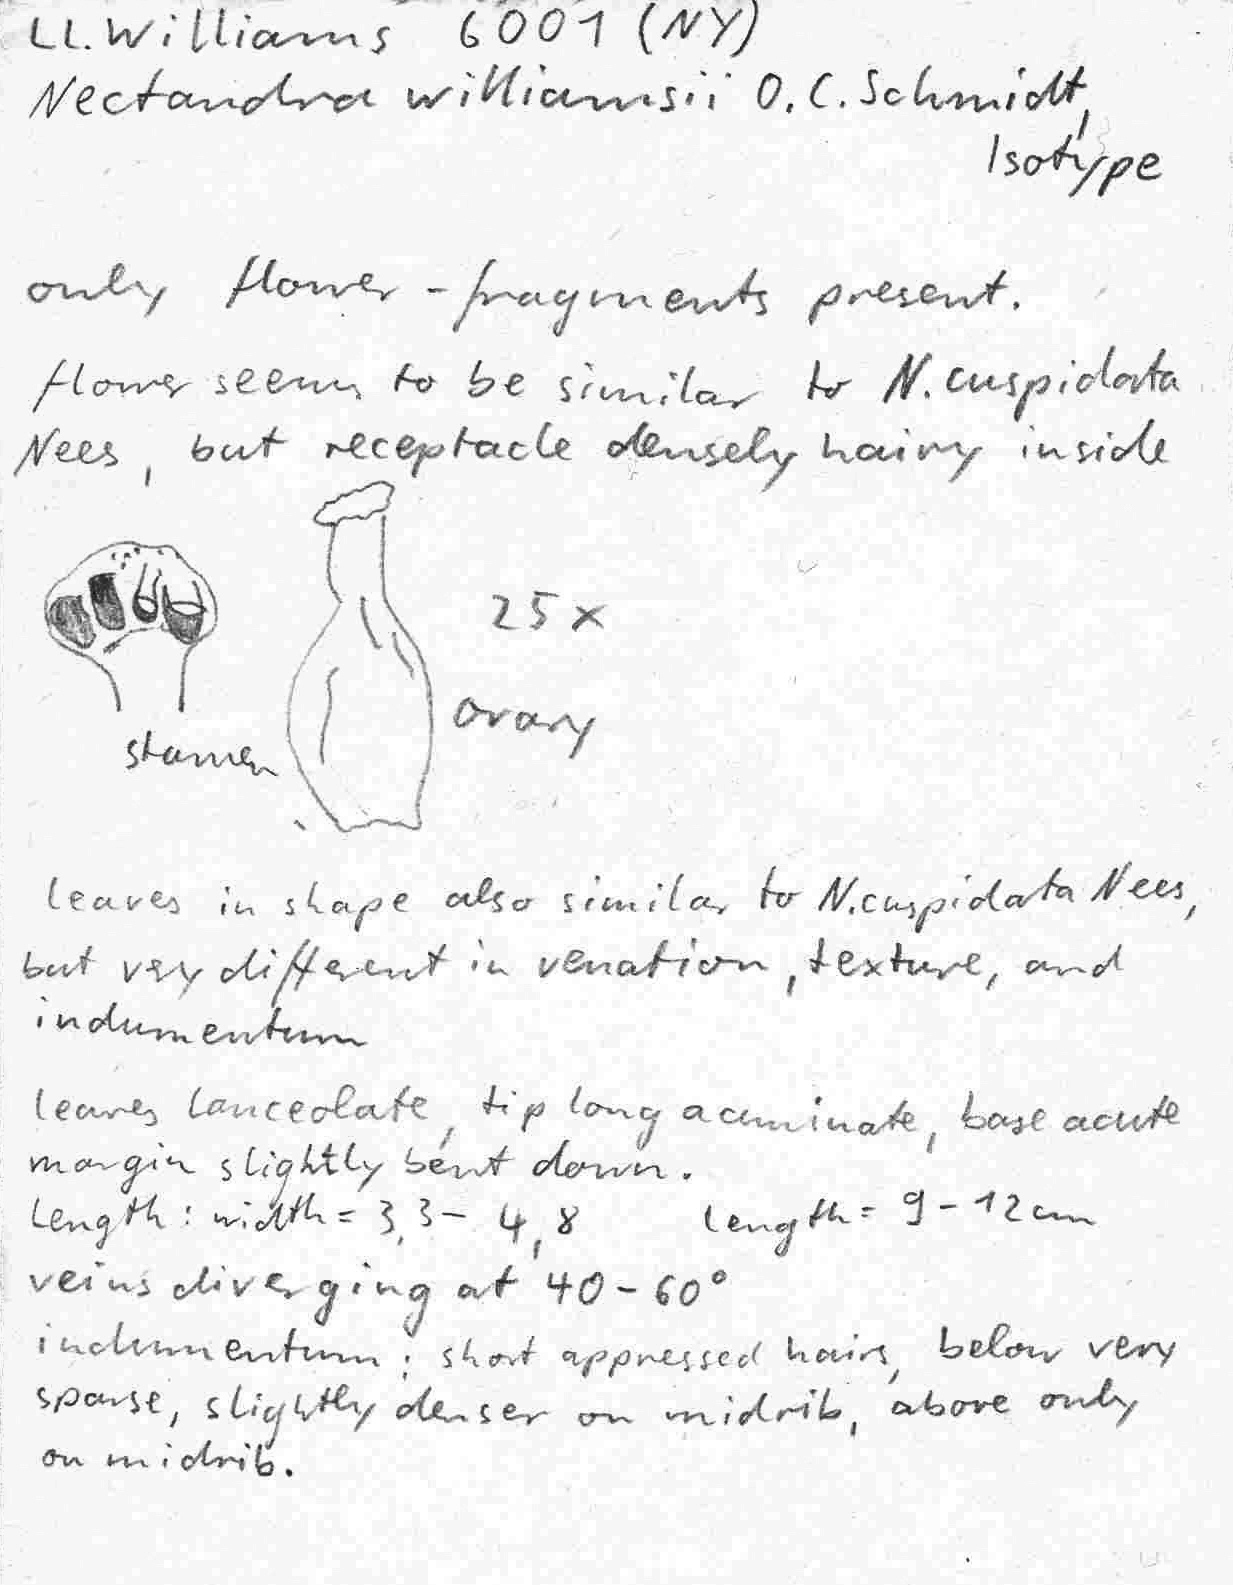 Ll. Williams 6001 (NY)
Nectandra williamsii O.C. Schmidt,
Isotype
only flower-fragments present.
flower seems to be similar to N. cuspidata
Nees, but receptacle densely hairy inside
25 x
ovary
stamen
leaves in shape also similar to N. cuspidata Nees,
but very different in venation, texture, and
indumentum
leaves lanceolate, tip long acuminate, base acute
margin slightly bent down.
Length: width = 3,3 - 4,8 length = 9 - 12 cm
veins diverging at 40 - 60°
indumentum: short appressed hairs, below very
sparse, slightly denser on midrib, above only
on midrib.